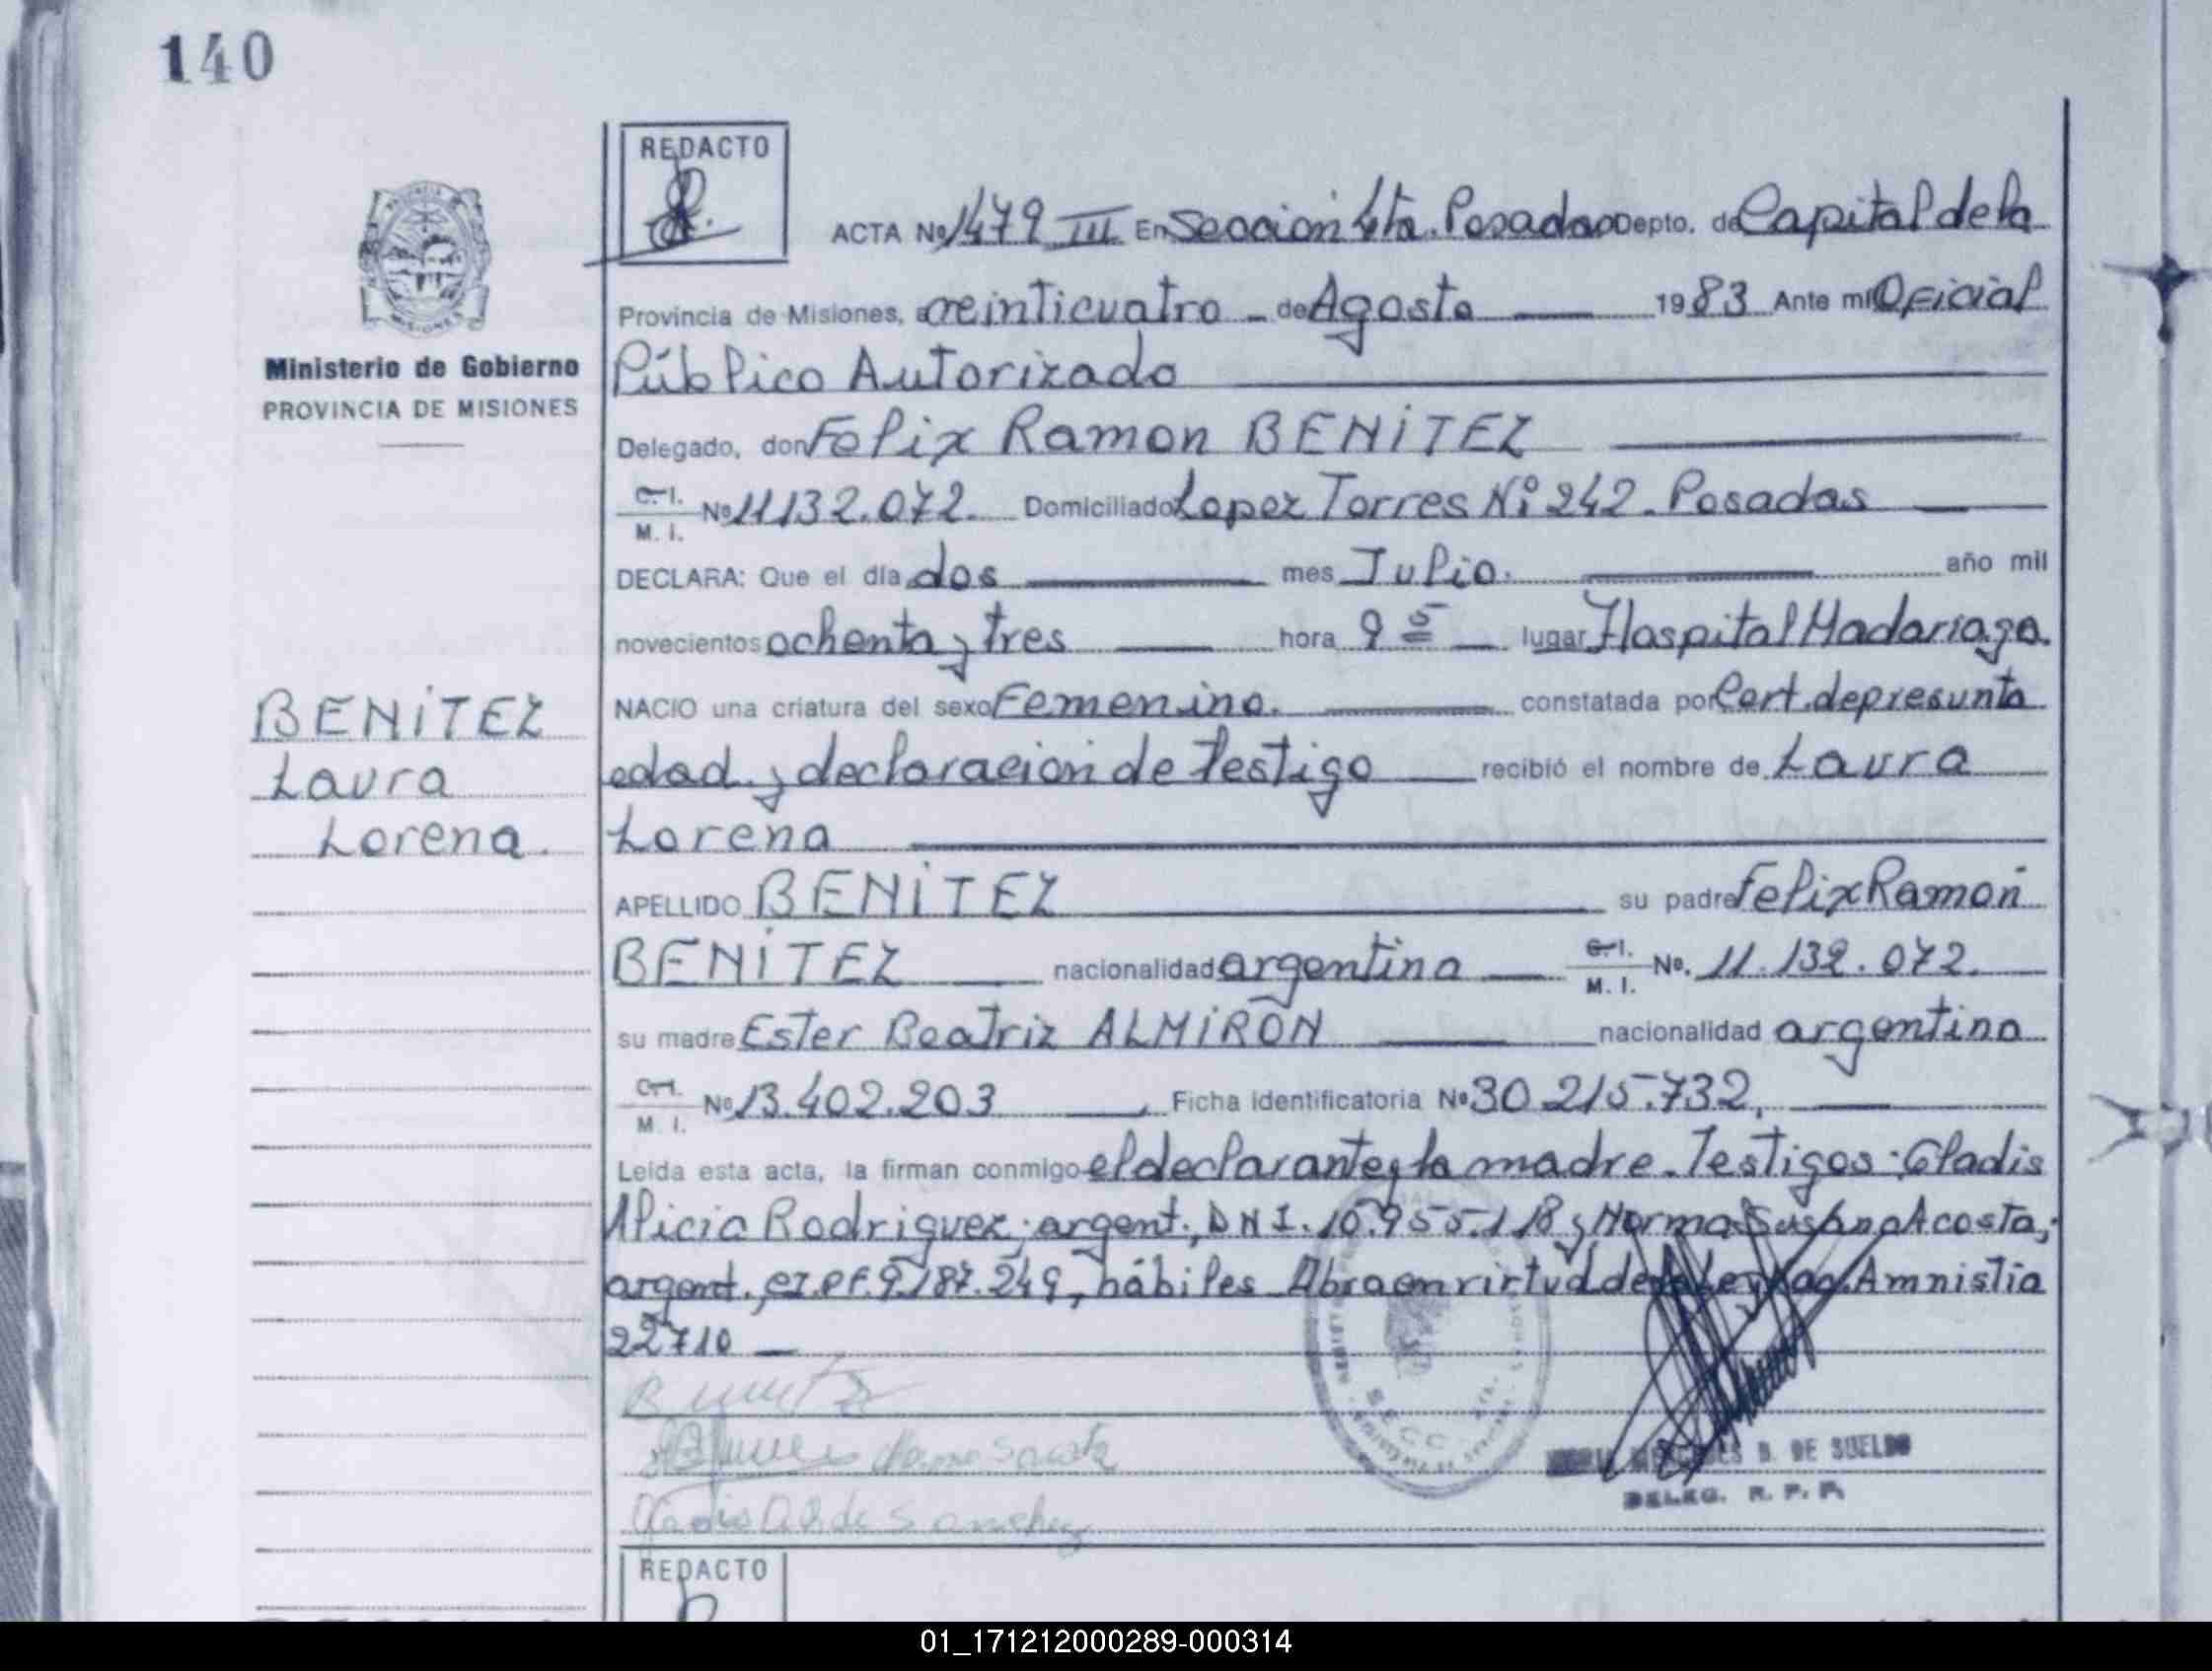 140
REDACTO
ACTA Nº 1479 III En Sección 4ta. Posadas Depto. de Capital de la
Provincia de Misiones, a veinticuatro - de Agosto 1983 Ante mi Oficial
Ministerio de Gobierno
PROVINCIA DE MISIONES
Público Autorizado
Delegado, don Felix Ramon BENITEZ
C. I. M. I. Nº 11132.072. Domiciliado Lopez Torres Nº 242. Posadas
DECLARA: Que el día dos mes Julio. año mil
novecientos ochenta y tres hora 9 5 lugar Hospital Madariaga.
NACIO una criatura del sexo Femenino. constatada por Cert. de presunta
edad y declaracion de Testigo recibió el nombre de Laura
Lorena
BENITEZ
Laura
Lorena.
APELLIDO BENITEZ su padre Felix Ramón
BENITEZ nacionalidad argentina C. I. M. I. No. 11.132.072.
su madre Ester Beatriz ALMIRON nacionalidad argentina
C. I. M. I. Nº 13.402.203 Ficha identificatoria Nº 30.215.732,
Leída esta acta, la firman conmigo el declarante y la madre. Testigos: Gladis
Alicia Rodriguez; argent., DNI. 10.955.118 y Norma Susana Acosta,
argent., CI. PF. 9.187.249, hábiles Obra en virtud de la Ley Nac. Amnistia
22710
B. DE SUELDO
DELEG. R. P. P.
REDACTO
01_171212000289-000314